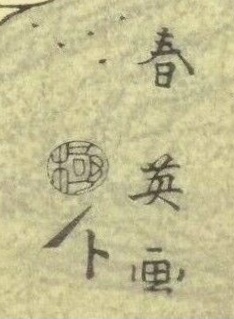 春英画
極